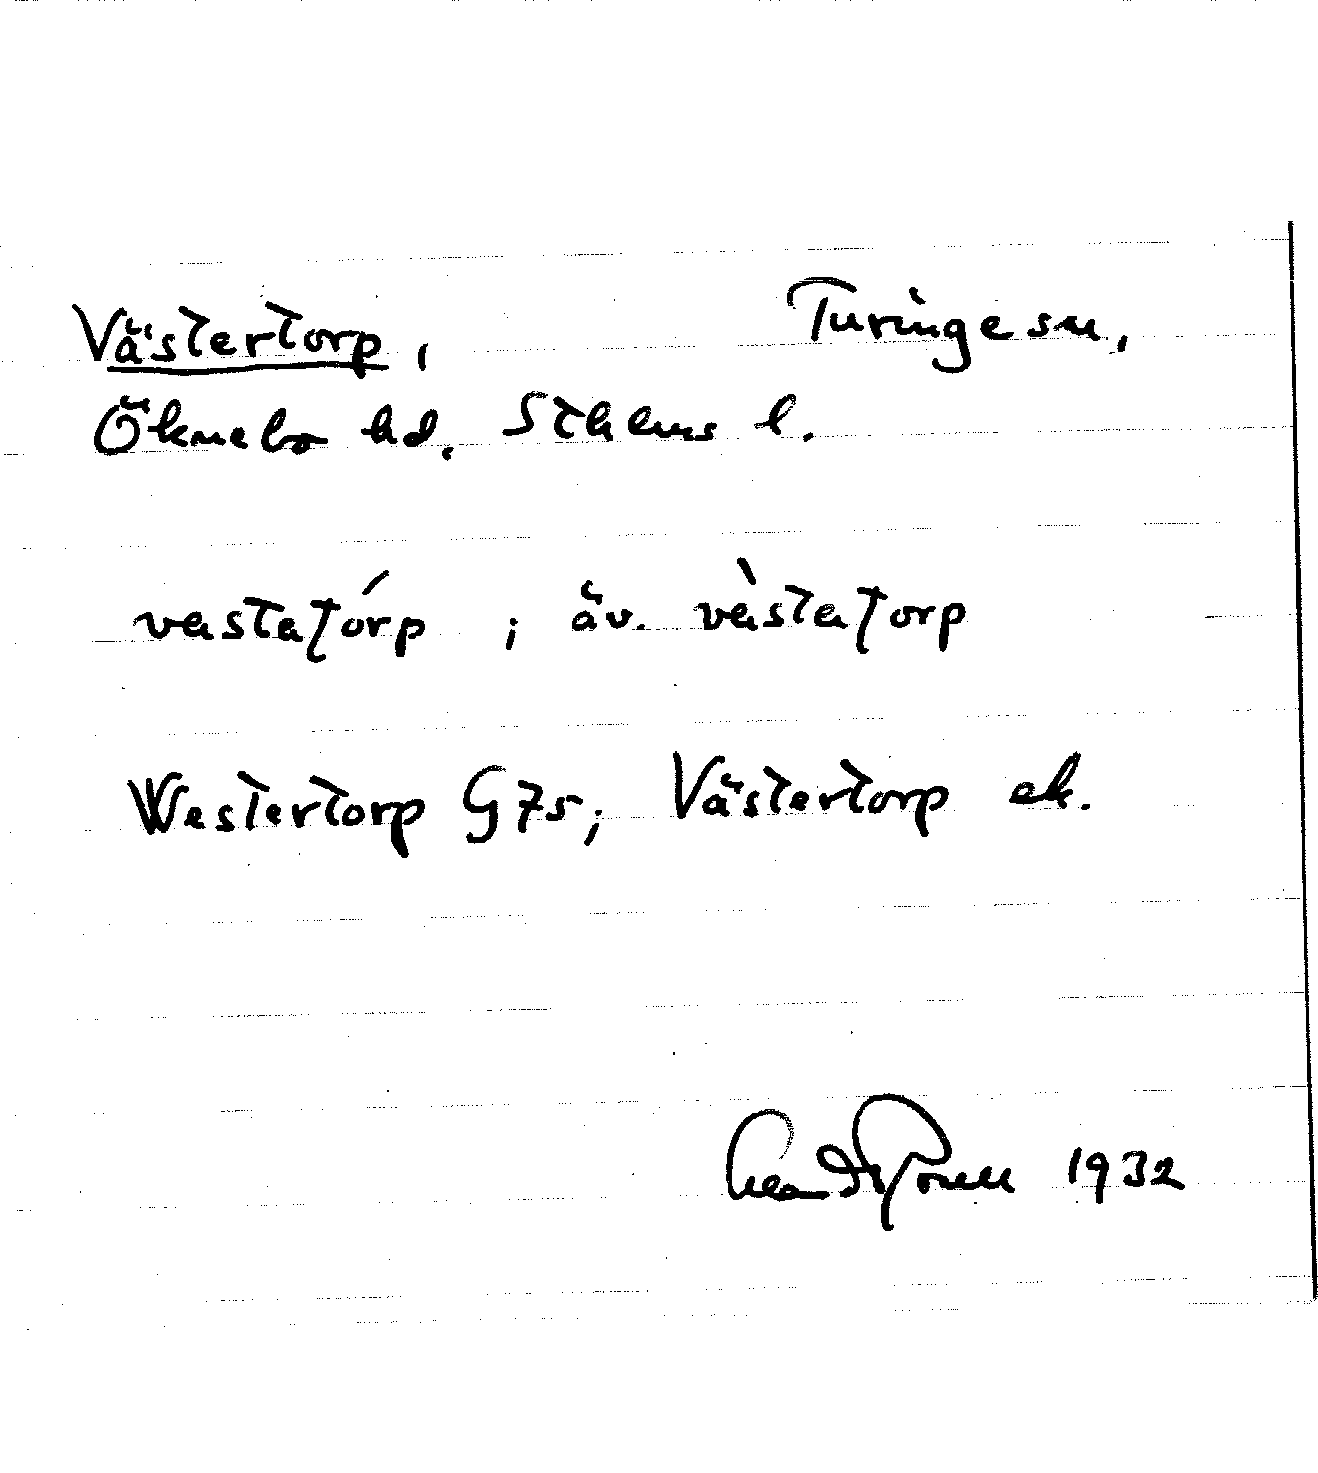 Västertorp, Turinge sn,
Öknebo hd. Sthlms l.
vesteʈórp ; äv. vèsteʈorp
Westertorp G75; Västertorp ek.
1932